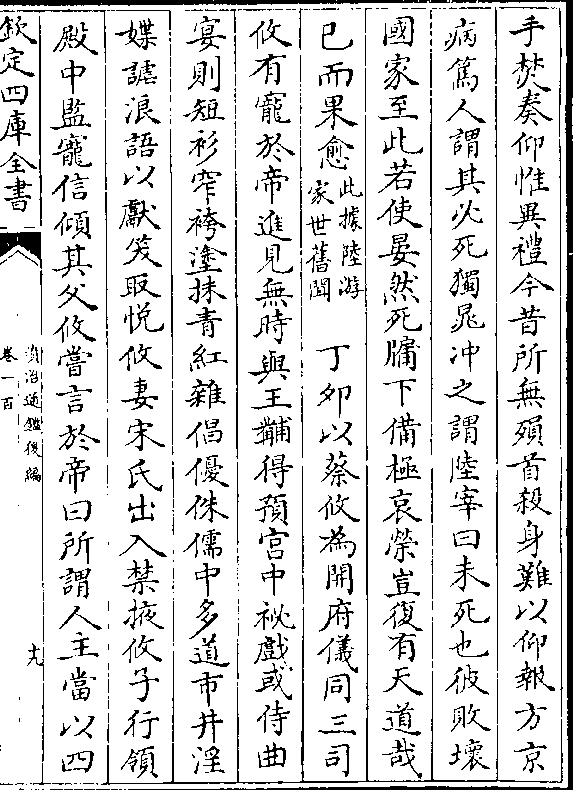 手焚奏仰惟異禮今昔所無殞首殺身難以仰報方京
病篤人謂其必死獨晁沖之謂陸宰曰未死也彼敗壞
國家至此若使晏然死牖下備極哀榮豈復有天道哉
已而果愈此據陸游家世舊聞　丁卯以蔡攸為開府儀同三司
攸有寵於帝進見無時與王黼得預宫中祕戲或侍曲
宴則短衫窄袴塗抹青紅雜倡優侏儒中多道市井淫
媟謔浪語以獻笑取悅攸妻宋氏出入禁掖攸子行領
殿中監寵信傾其父攸嘗言於帝曰所謂人主當以四
欽定四庫全書
資治通鑑後編
卷一百
十九